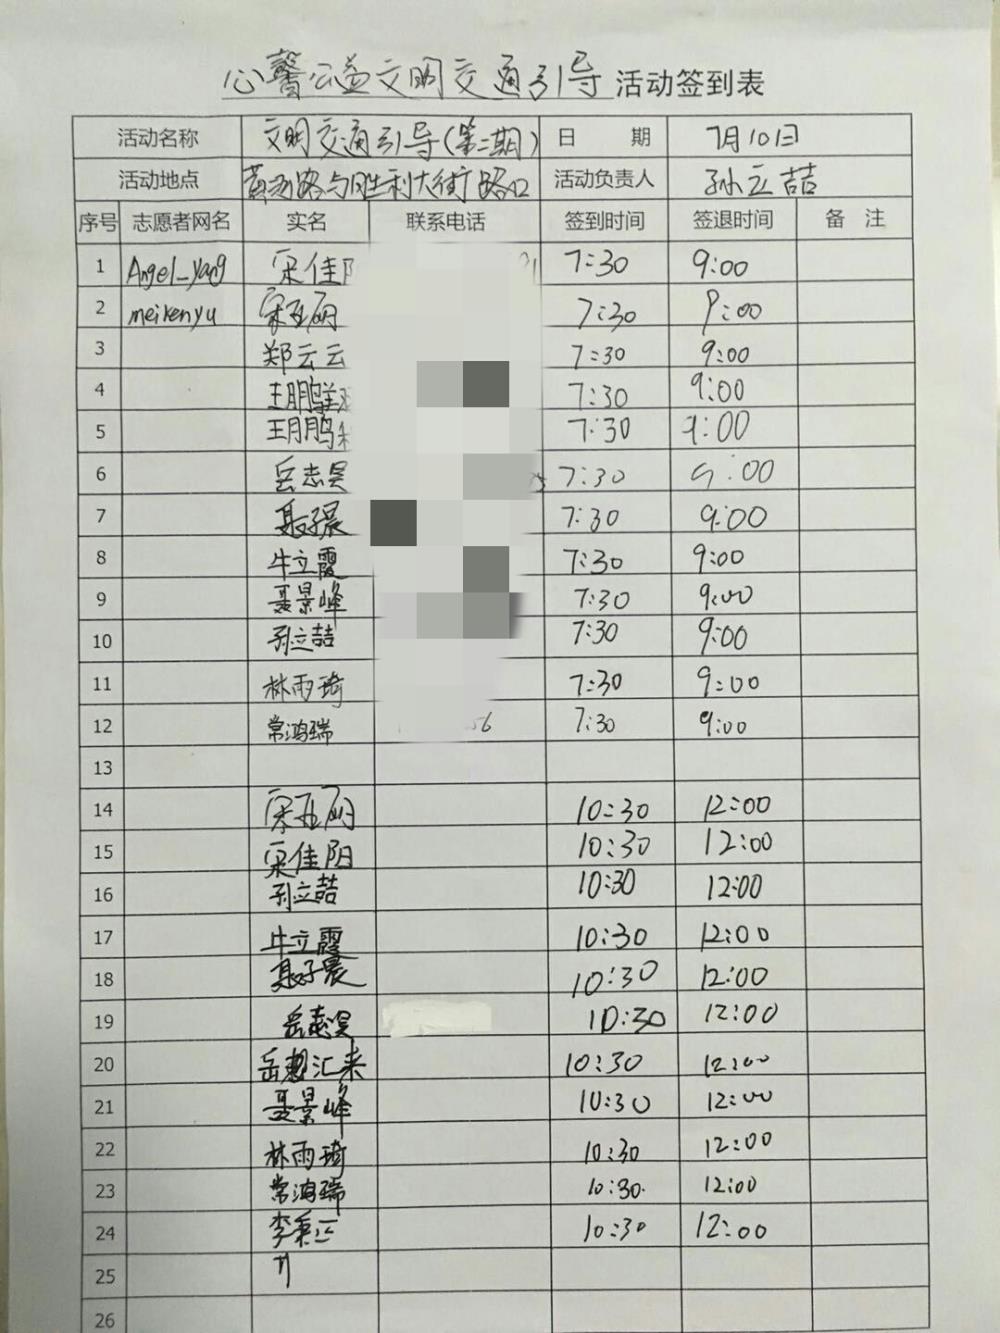 心馨公益文明交通引导活动签到表
活动名称 文明交通引导(第二期) 日 期 7月10日
活动地点 路与胜利大街路口 活动负责人 孙立喆
序号 志愿者网名 实名 联系电话 签到时间 签退时间 备 注
1 Angel_yang 宋佳阳 7:30 9:00
2 meirenyu 宋丽 7:30 9:00
3 郑云云 7:30 9:00
4 王鹏 7:30 9:00
5 王鹏 7:30 9:00
6 岳志昊 7:30 9:00
7 聂子晨 7:30 9:00
8 牛立霞 7:30 9:00
9 聂景峰 7:30 9:00
10 孙立喆 7:30 9:00
11 林雨琦 7:30 9:00
12 常鸿瑞 56 7:30 9:00
13
14 宋丽 10:30 12:00
15 宋佳阳 10:30 12:00
16 孙立喆 10:30 12:00
17 牛立霞 10:30 12:00
18 聂子晨 10:30 12:00
19 岳志昊 10:30 12:00
20 岳汇来 10:30 12:00
21 聂景峰 10:30 12:00
22 林雨琦 10:30 12:00
23 常鸿瑞 10:30. 12:00
24 李秉 10:30 12:00
25
26